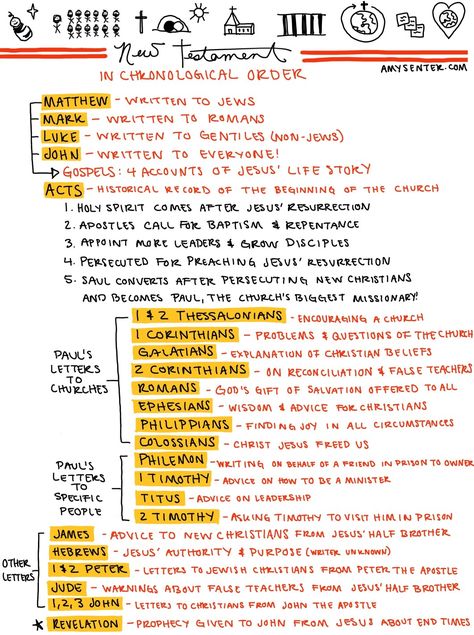 New Testament
IN CHRONOLOGICAL ORDER
AMYSENTER.COM
MATTHEW - WRITTEN TO JEWS
MARK - WRITTEN TO ROMANS
LUKE - WRITTEN TO GENTILES (NON-JEWS)
JOHN - WRITTEN TO EVERYONE!
GOSPELS: 4 ACCOUNTS OF JESUS' LIFE STORY
ACTS - HISTORICAL RECORD OF THE BEGINNING OF THE CHURCH
1. HOLY SPIRIT COMES AFTER JESUS' RESURRECTION
2. APOSTLES CALL FOR BAPTISM & REPENTANCE
3. APPOINT MORE LEADERS & GROW DISCIPLES
4. PERSECUTED FOR PREACHING JESUS' RESURRECTION
5. SAUL CONVERTS AFTER PERSECUTING NEW CHRISTIANS
AND BECOMES PAUL, THE CHURCH'S BIGGEST MISSIONARY!
PAUL'S
LETTERS
TO
CHURCHES
1 & 2 THESSALONIANS - ENCOURAGING A CHURCH
1 CORINTHIANS - PROBLEMS & QUESTIONS OF THE CHURCH
GALATIANS - EXPLANATION OF CHRISTIAN BELIEFS
2 CORINTHIANS - ON RECONCILIATION & FALSE TEACHERS
ROMANS - GOD'S GIFT OF SALVATION OFFERED TO ALL
EPHESIANS - WISDOM & ADVICE FOR CHRISTIANS
PHILIPPIANS - FINDING JOY IN ALL CIRCUMSTANCES
COLOSSIANS - CHRIST JESUS FREED US
PAUL'S
LETTERS
TO
SPECIFIC
PEOPLE
PHILEMON - WRITING ON BEHALF OF A FRIEND IN PRISON TO OWNER
1 TIMOTHY - ADVICE ON HOW TO BE A MINISTER
TITUS - ADVICE ON LEADERSHIP
2 TIMOTHY - ASKING TIMOTHY TO VISIT HIM IN PRISON
OTHER
LETTERS
JAMES - ADVICE TO NEW CHRISTIANS FROM JESUS' HALF BROTHER
HEBREWS - JESUS' AUTHORITY & PURPOSE (WRITER UNKNOWN)
1 & 2 PETER - LETTERS TO JEWISH CHRISTIANS FROM PETER THE APOSTLE
JUDE - WARNINGS ABOUT FALSE TEACHERS FROM JESUS' HALF BROTHER
1, 2, 3 JOHN - LETTERS TO CHRISTIANS FROM JOHN THE APOSTLE
* REVELATION - PROPHECY GIVEN TO JOHN FROM JESUS ABOUT END TIMES